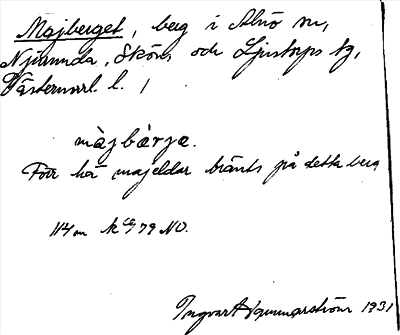 Majberget, berg i Alnö sn,
Njurunda, Sköns och Ljustorps tg,
Västernorrl. l.
màjbærjæ.
Förr ha majeldar bränts på detta berg
114 m kbl 79 NO.
Ingvar 1931